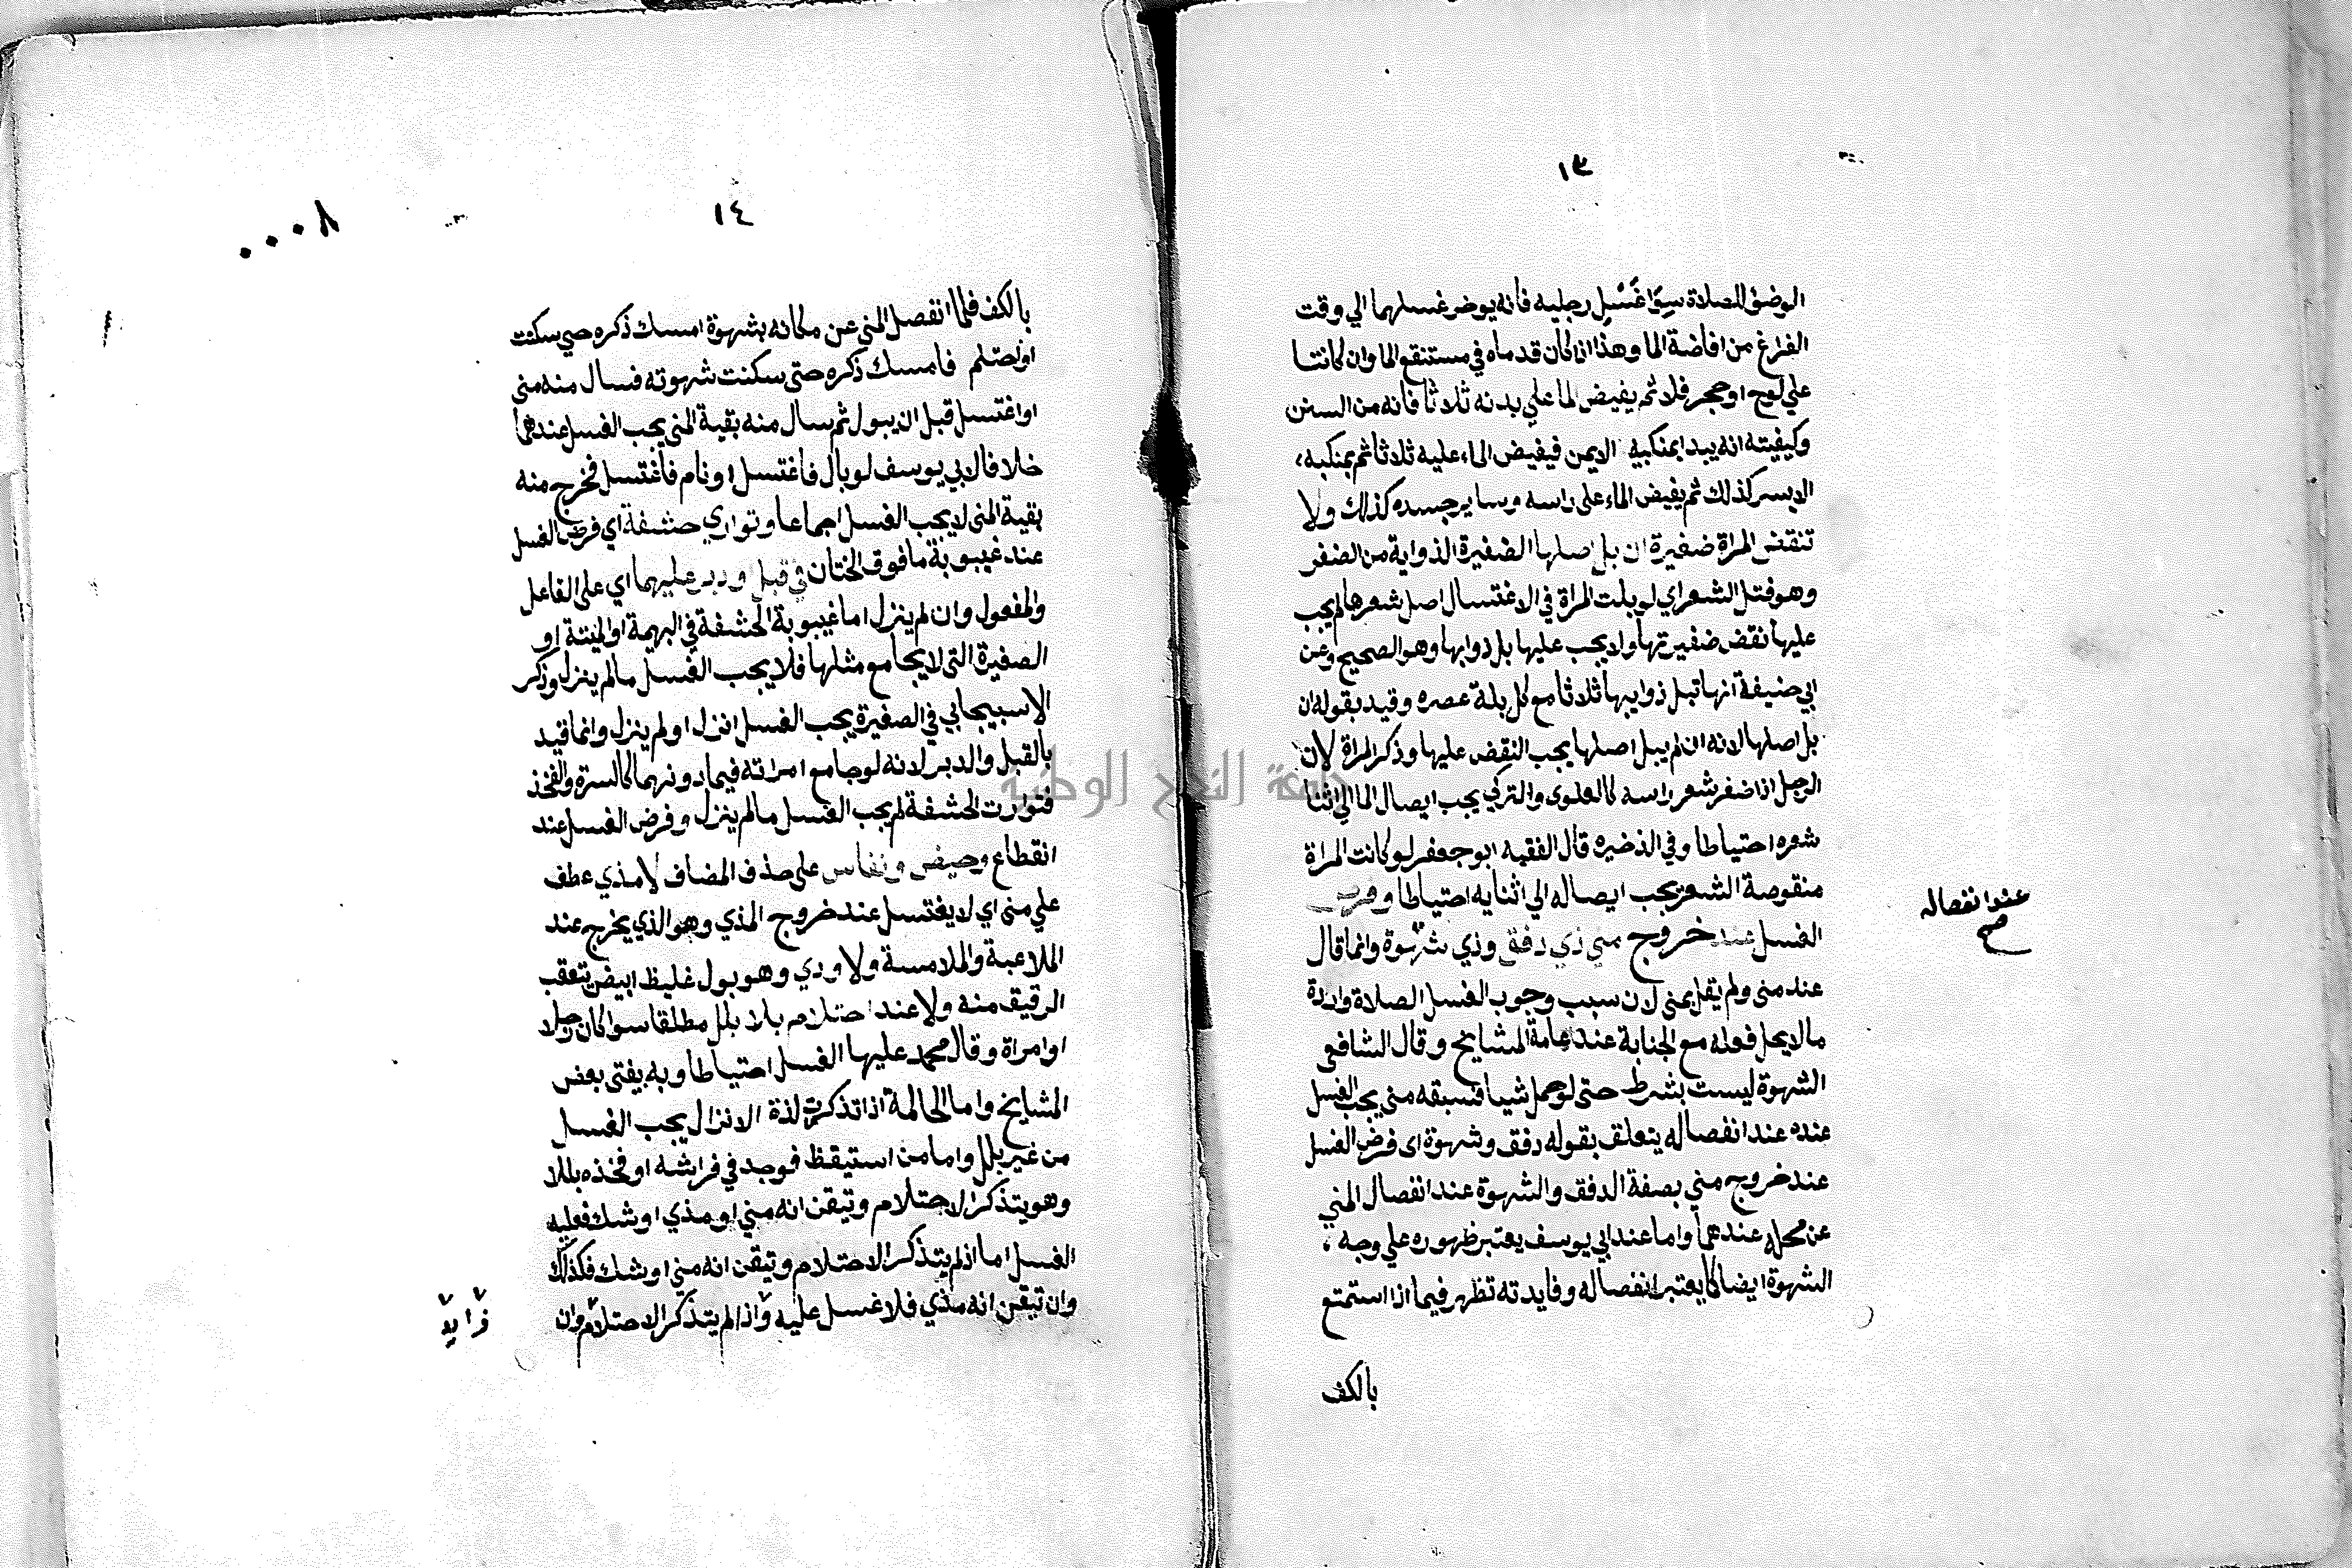 ١٣
الوضوء للصلاة سوا غسل رجليه فانه يوخر غسلهما الي وقت
الفراغ من افاضة الما وهذا اذا كان قدماه في مستنقع الما وان كانتا
علي لوح او حجر فلا ثم يفيض الما علي بدنه ثلاثا فانه من السنن
وكيفيته انه يبدا بمنكبيه الايمن فيفيض الماء عليه ثلاثا ثم بمنكبه
الايسر كذلك ثم يفيض الماء على راسه وساير جسده كذلك ولا
تنقض المراة ضفيرة ان بل اصلها الضفيرة الذواية من الضفر
وهو فتل الشعر اي لو بلت المراة في الاغتسال اصل شعرها لم يجب
عليها نقض ضفيرتها ولا يجب عليها بل ذوابها وهو الصحيح وعن
ابي حنيفة انها تبل ذوايبها ثلاثا مع كل بلة عصره وقيد بقوله ان
بل اصلها لانه ان لم يبل اصلها يجب النقض عليها وذكر المراة لان
الرجل اذا ضفر شعر راسه كالعلوى والتركي يجب ايصال الما الي اثنا
شعره احتياطا وفي الذخيره قال الفقيه ابو جعفر لو كانت المراة
منقوصة الشعر يجب ايصاله الي اثنايه احتياطا وفرض
الغسل عند خروج مني ذي دفق وذي شهوة وانما قال
عند منى ولم يقل بمنى لان سبب وجوب الغسل الصلاة وارادة
ما لا يحل فعله مع الجنابة عند عامة المشايخ وقال الشافعي
الشهوة ليست بشرط حتى لو حمل شيا فسبقه منى يجب الغسل
عنده عند انفصاله يتعلق بقوله دفق وشهوة اى فرض الغسل
عند خروج مني بصفة الدفق والشهوة عند انفصال المني
عن محله عندهما واما عند ابي يوسف يعتبر ظهوره علي وجه
الشهوة ايضا كما يعتبر انفصاله وفايدته تظهر فيما اذا استمتع
بالكف
عند انفصاله
صح
١٤
٠٠٠٨
بالكف فلما انفصل المني عن مكانه بشهوة امسك ذكره حتي سكنت
او احتلم فامسك ذكره حتى سكنت شهوته فسال منه منى
او اغتسل قبل ان يبول ثم سال منه بقية المني يجب الغسل عندهما
خلافا لابي يوسف لو بال فاغتسل او نام فاغتسل فخرج منه
بقية المنى لا يجب الغسل اجماعا وتواري حشفة اي فرض الغسل
عند غيبوبة ما فوق الختان في قبل ودبر عليهما اي على الفاعل
والمفعول وان لم ينزل اما غيبوبة الحشفة في البهيمة او الميتة او
الصغيرة التى لا يجامع مثلها فلا يجب الغسل ما لم ينزل وذكر
الاسبيجابي في الصغيرة يجب الغسل انزل او لم ينزل وانما قيد
بالقبل والدبر لانه لو جامع امراته فيما دونهما كالسرة والفخذ
فتوارت الحشفة لم يجب الغسل ما لم ينزل وفرض الغسل عند
انقطاع وحيض ونفاس على حذف المضاف لا مذي عطف
علي منى اي لا يغتسل عند خروج المذي وهو الذي يخرج عند
الملاعبة والملامسة ولا ودي وهو بول غليظ ابيض يتعقب
الرقيق منه ولا عند احتلام بلا بلل مطلقا سوا كان رجلا
او امراة وقال محمد عليها الغسل احتياطا وبه يفتى بعض
المشايخ واما الحالمة اذا تذكرت لذة الانزال يجب الغسل
من غير بلل واما من استيقظ فوجد في فراشه او فخذه بللا
وهو يتذكر الاحتلام وتيقن انه مني او مذي او شك فعليه
الغسل اما اذا لم يتذكر الاحتلام وتيقن انه مني او شك فكذلك
وان تيقن انه مذي فلا غسل عليه واذا لم يتذكر الاحتلام وان
جامعة النجاح الوطنية